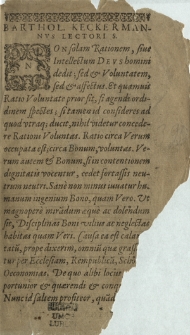 BARTHOL. KECKERMAN-
NVS LECTORI S.
NON solam Rationem, sive
Intellectum DEVS homini
dedit, sed & Voluntatem,
sed & affectus. Et quamvis
Ratio Voluntate prior sit, si agendi ordi-
dinem spectes; si tamen id consideres ad
quod utraq; ducit, nihil videtur concede-
re Rationi Voluntas. Ratio circa Verum
occupata est; circa Bonum, voluntas. Ve-
rum autem & Bonum, si in contentionem
dignitatis vocentur, cedet fortassis neu-
trum neutri. Sanè non minus unatur hu-
manum ingenium Bono, quam Vero. Ut
magnopere mirandum eque ac dolendum
sit, Disciplinas Boni vilius ac neglectas
habitas quam Veri. Causa ea est calami-
tatũ, prope dixerim, omniũ quæ grassã
tur per Ecclesiam, Rempublicã, Schol
Oeconomias. De quo alibi locus
portunior & quærendi & conq
Nunc id saltem profiteor, quod